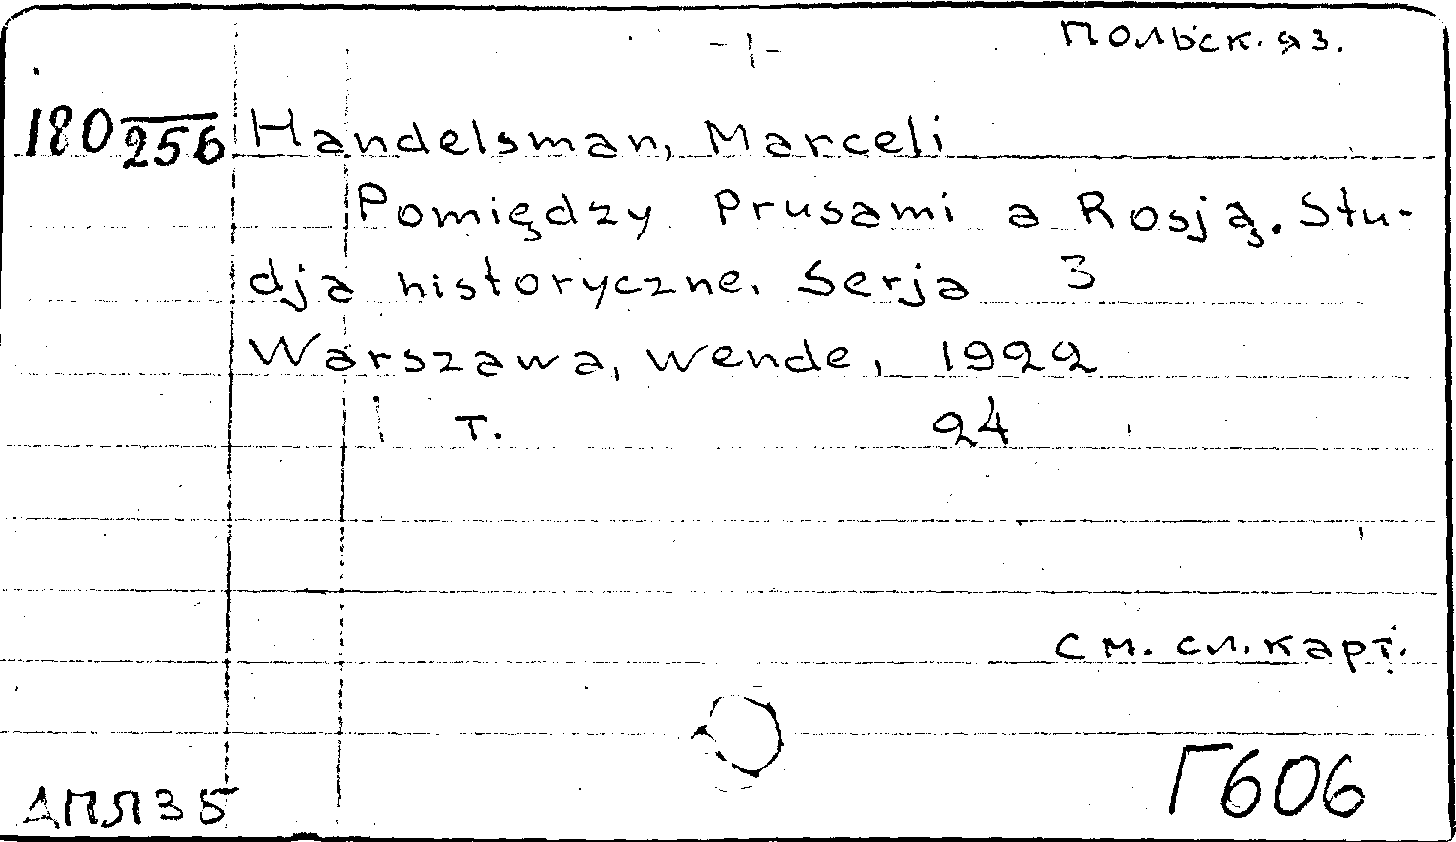 польск. яз.
180 256 Handelsman, Marceli
Pomiędzy Prusami a Rosją. Stu-
dja historyczne. Serja 3
Warszawa, Wende, 1922
1 т. 24
см. сл. карт.
Г606